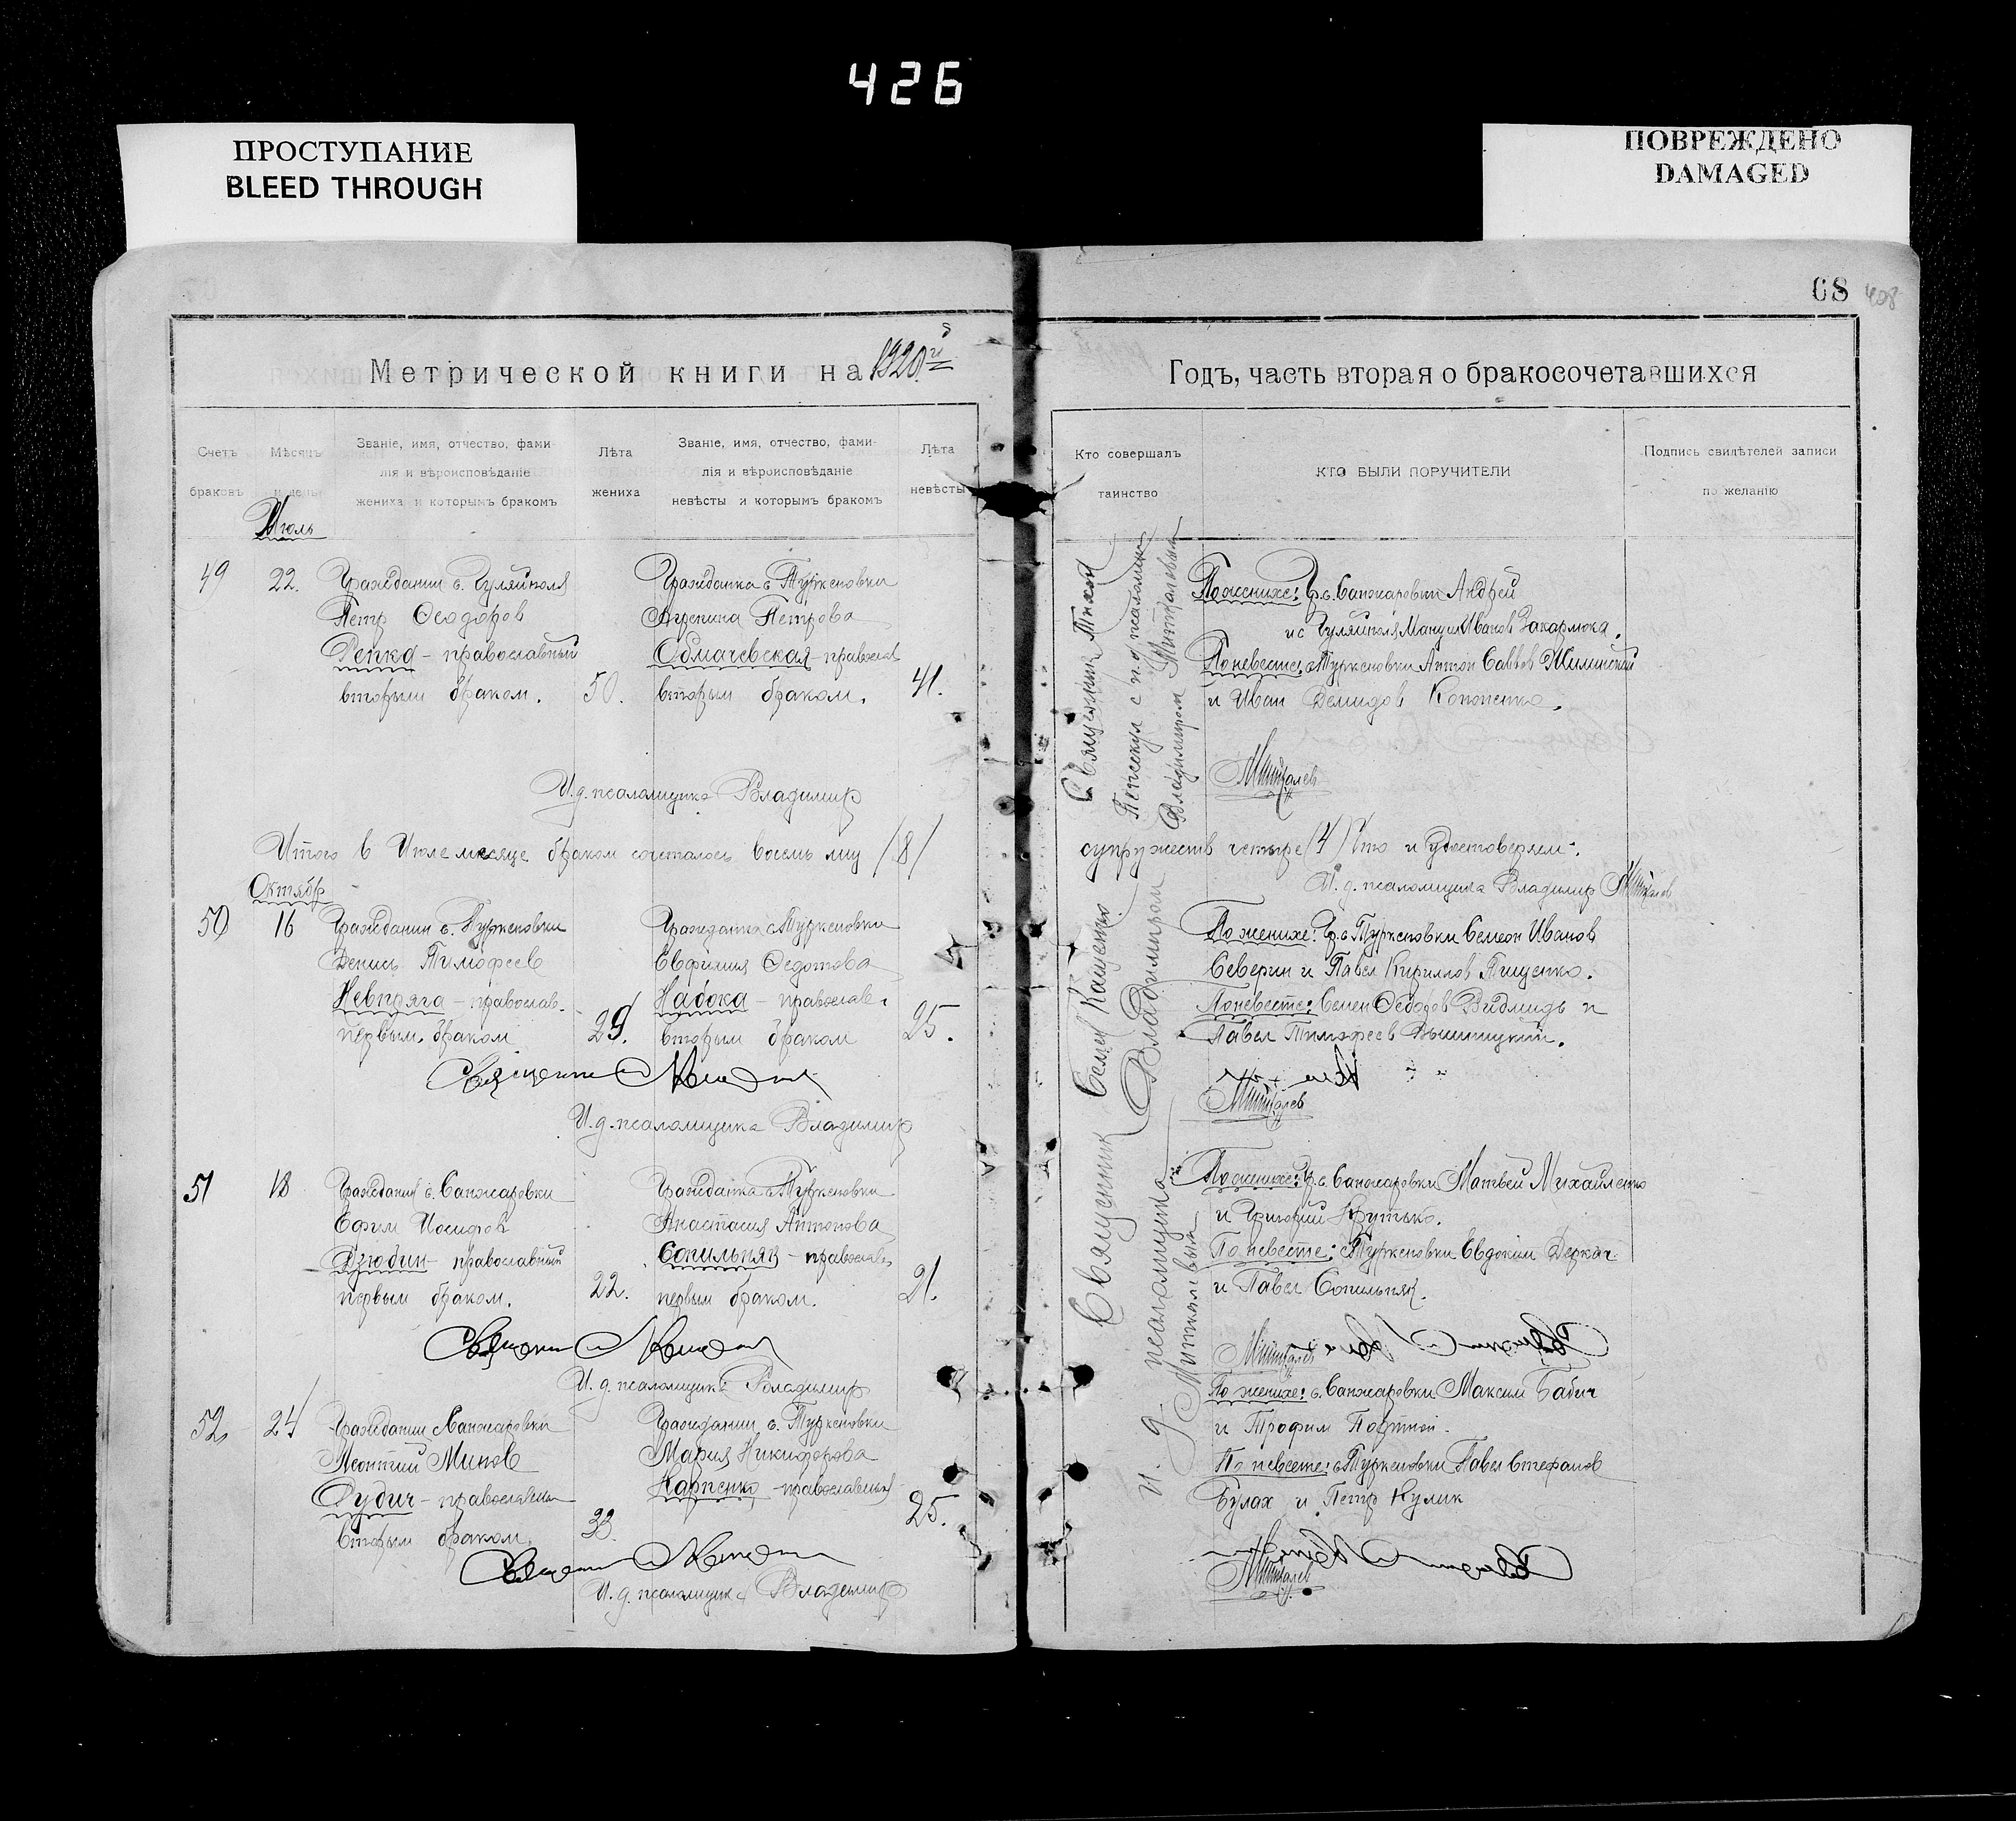 426
ПРОСТУПАНИЕ
BLEED THROUGH
ПОВРЕЖДЕНО
DAMAGED
68
408
Метрической книги на 1920 г.
Годъ, часть вторая о бракосочетавшихся
Счетъ
браковъ
Мѣсяцъ
и день
Званіе, имя, отчество, фами-
лія и вѣроисповѣданіе
жениха и которымъ бракомъ
Лѣта
жениха
Званіе, имя, отчество, фами-
лія и вѣроисповѣданіе
невѣсты и которымъ бракомъ
Лѣта
невѣсты
Кто совершалъ
таинство
КТО БЫЛИ ПОРУЧИТЕЛИ
Подпись свидѣтелей записи
по желанію
Июль
49
22.
Гражданин с. Гуляйполя
Петр Феодоров
Репка - православный
вторым браком.
50.
Гражданка с. Туркеновки
Агрепина Петрова
православ
вторым браком.
41.
Священник Тихон
Пепескул с и. д. псаломщика
Владимиром
По женихе: Гр. с. Санжаровки Андрей
и с Гуляйполя Иванов
По невесте: с. Туркеновки Антон Саввов Жилинский
и Иван Демидов Кононенко.
И. д. псаломщика Владимир
Итого в Июле месяце браком сочеталось восемь лиц /8/
супружеств четыре (4) Что и удостоверяем.
И. д. псаломщика Владимир
Октябр
50
16
Гражданин с. Туркеновки
Денись Тимофеев
Невпряга - православ.
первым браком
29.
Гражданка с Туркеновки
Евфимия Федотова
Набока - православ.
вторым браком
25.
Священник Семен Кащенко
и. д. псаломщика Владимиром
По женихе: Гр. с Туркеновки Семеон Иванов
Северин и Павел Кириллов Пищенко.
По невесте: Семен Феодоров и
Павел Тимофеев
Священник
И. д. псаломщика Владимир
51
18
Гражданин с. Санжаровки
Ефим Иосифов
Дзюбин - православный
первым браком.
22.
Гражданка с Туркеновки
Анастасия Антонова
Сопильняк - православ.
первым браком.
21.
По женихе: Гр. с. Санжаровки Матвей Михайленко
и Григорий Крутько.
По невесте: с Туркеновки Евдоким Деркач
и Павел Сопильняк.
Священник
И. д. псаломщика Владимир
52
24
Гражданин Санжаровки
Леонтий Минов
Дудич - православный
вторым браком.
38.
Гражданин с. Туркеновки
Мария Никифорова
Карпенко - православный
25.
По женихе: с. Санжаровки Максим Бабич
и Трофим Портной.
По невесте: с Туркеновки Павел Стефанов
Булах и Петр Кулик
Священник
И. д. псаломщика Владимир